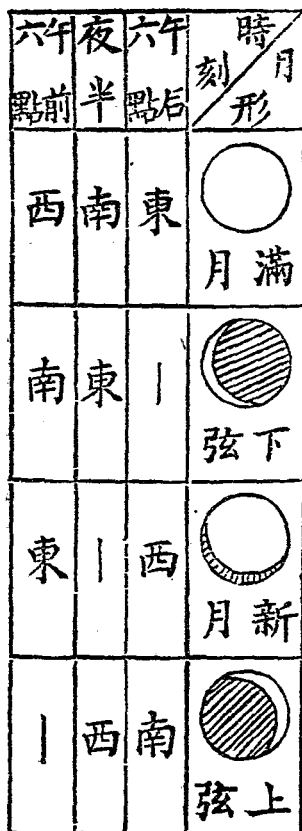 時刻 月形
午后六點
夜半
午前六點
滿月
東
南
西
下弦
｜
東
南
新月
西
｜
東
上弦
南
西
｜